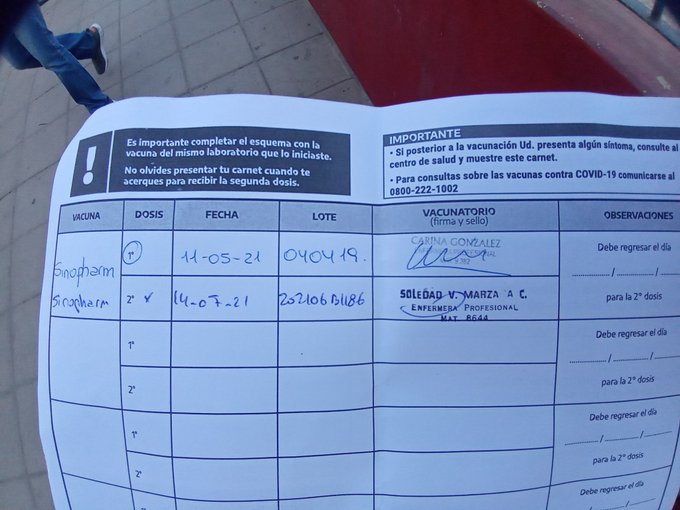 !
Es importante completar el esquema con la
vacuna del mismo laboratorio que lo iniciaste.
No olvides presentar tu carnet cuando te
acerques para recibir la segunda dosis.
IMPORTANTE
• Si posterior a la vacunación Ud. presenta algún síntoma, consulte al
centro de salud y muestre este carnet.
• Para consultas sobre las vacunas contra COVID-19 comunicarse al
0800-222-1002
VACUNA DOSIS FECHA LOTE VACUNATORIO OBSERVACIONES
(firma y sello)
Sinopharm 1° 11-05-21 040419. CARINA GONZALEZ Debe regresar el día
....../....../......
Sinopharm 2° 14-07-21 202106B1186 SOLEDAD V. MARZA A C. para la 2° dosis
ENFERMERA PROFESIONAL
MAT. 8644
1° Debe regresar el día
....../....../......
2° para la 2° dosis
1° Debe regresar el día
....../....../......
2° para la 2° dosis
Debe regresar el día